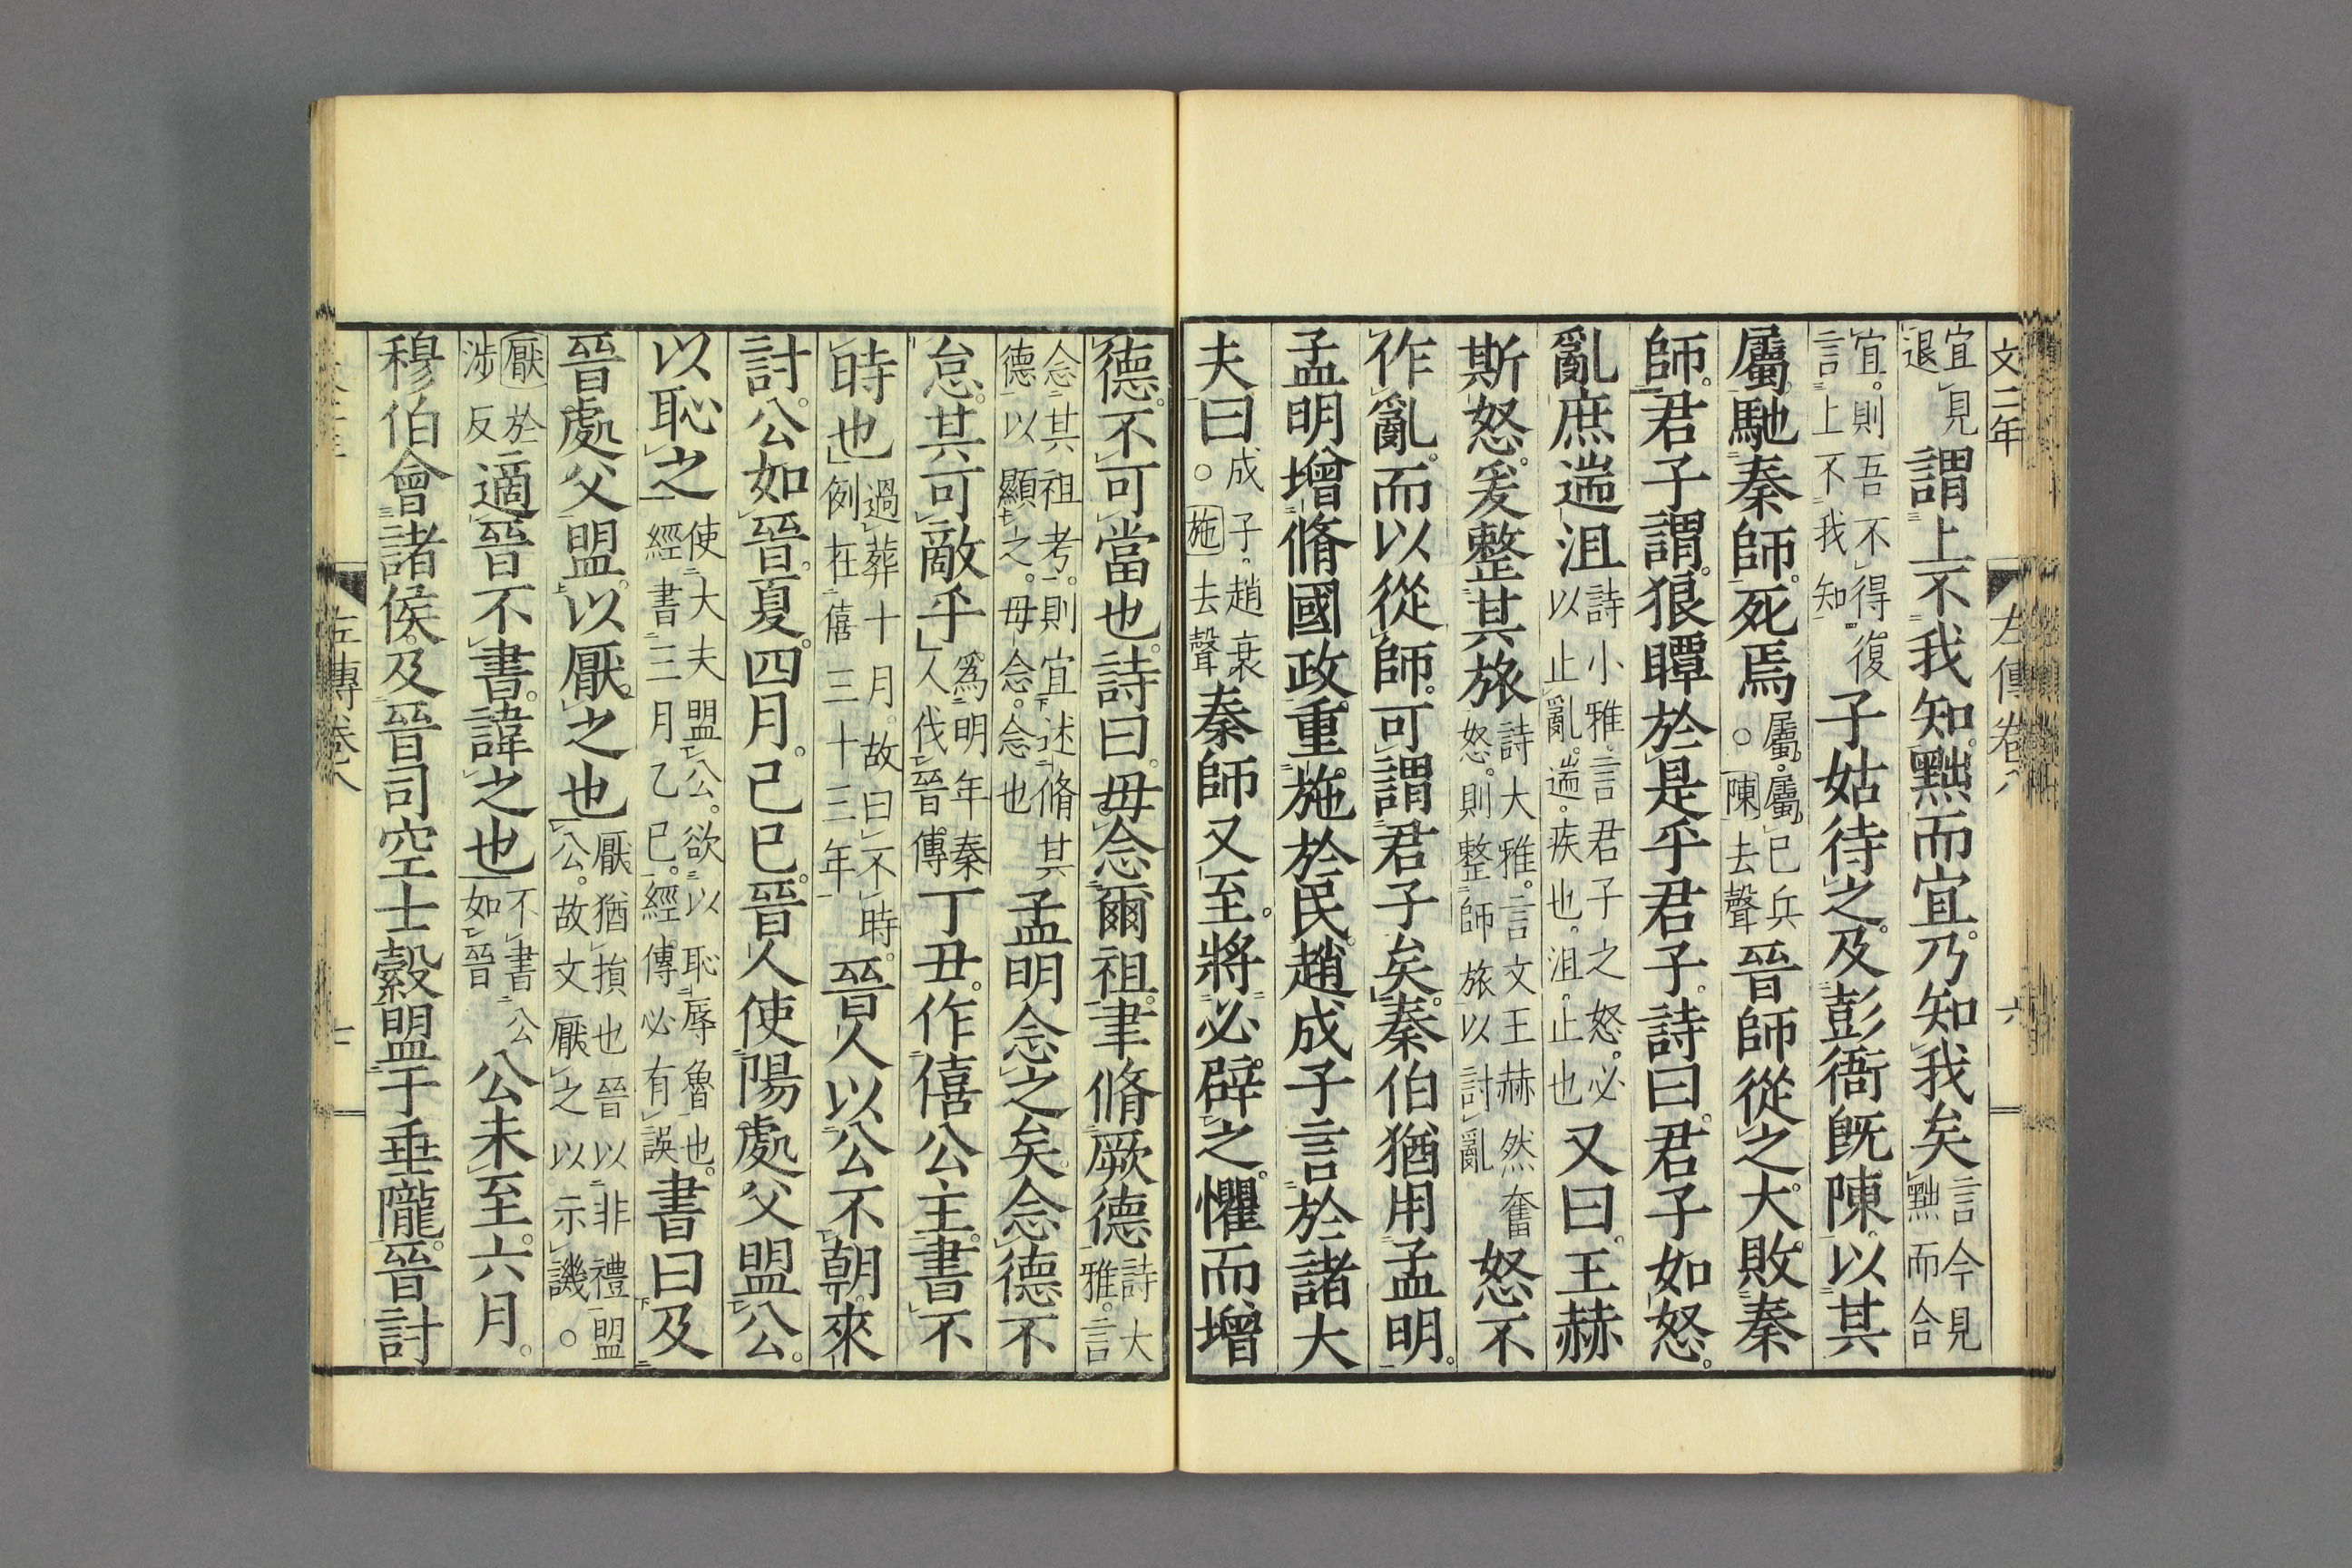 文二年　左傳卷八　六
宜見退謂上不我知黜而宜乃知我矣言今見黜而合
宜。則吾不得復言上不我知子姑待之。及彭衙旣陳。以其
屬。馳秦師。死焉。屬。屬己兵○陳去聲晉師從之。大敗秦
師。君子謂。狼瞫於是乎君子。詩曰。君子如怒。
亂庶遄沮詩小雅。言君子之怒。必以止亂。遄。疾也。沮。止也又曰。王赫
斯怒。爰整其旅詩大雅。言文王赫然奮怒。則整師旅以討亂怒不
作亂。而以從師。可謂君子矣。秦伯猶用孟明。
孟明增脩國政。重施於民。趙成子言於諸大
夫曰。成子。趙衰○施去聲秦師又至。將必辟之。懼而增
德。不可當也。詩曰。毋念爾祖。聿脩厥德詩大雅。言
念其祖考。則宜述脩其德以顯之。毋念。念也孟明念之矣。念德不
怠。其可敵乎爲明年秦人伐晉傳丁丑。作僖公主。書不
時也過葬十月。故曰不時。例在僖三十三年晉人以公不朝。來
討。公如晉。夏。四月。己巳。晉人使陽處父盟公。
以恥之使大夫盟公。欲以恥辱魯也。經書三月乙巳。經傳必有誤書曰及
晉處父盟。以厭之也厭猶損也晉以非禮盟公。故文厭之以示譏。○
厭於涉反適晉不書。諱之也不書公如晉公未至。六月。
穆伯會諸侯。及晉司空士縠盟于垂隴。晉討
左傳卷八